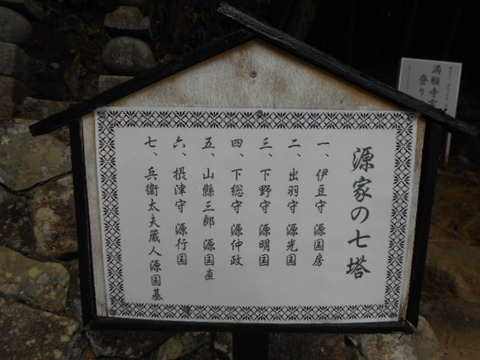 源家の七塔
一、伊豆守 源国房
二、出羽守 源光国
三、下野守 源明国
四、下総守 源仲政
五、山縣三郎 源国直
六、摂津守 源行国
七、兵衛太夫蔵人源国基
満願寺
登り